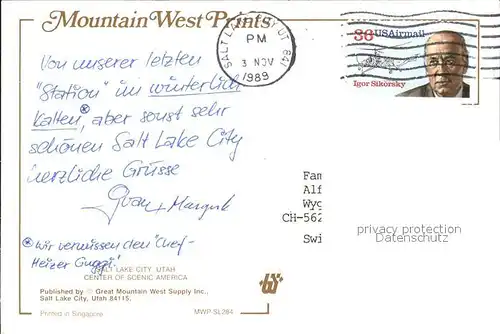 Mountain West Prints
SALT LAKE CITY UT 841
PM
3 NOV
1989
36 USAirmail
Igor Sikorsky
Von unserer letzten
"Station" im winterlich
kalten, aber sonst sehr
schönen Salt Lake City
herzliche Grüsse
+
* wir vermissen den "Chef-
Heizer Guggi."
SALT LAKE CITY, UTAH
CENTER OF SCENIC AMERICA
Fam
Alf
Wyg
CH-562
Swi
privacy protection
Datenschutz
Published by © Great Mountain West Supply Inc.,
Salt Lake City, Utah 84115,
Printed in Singapore
MWP-SL284